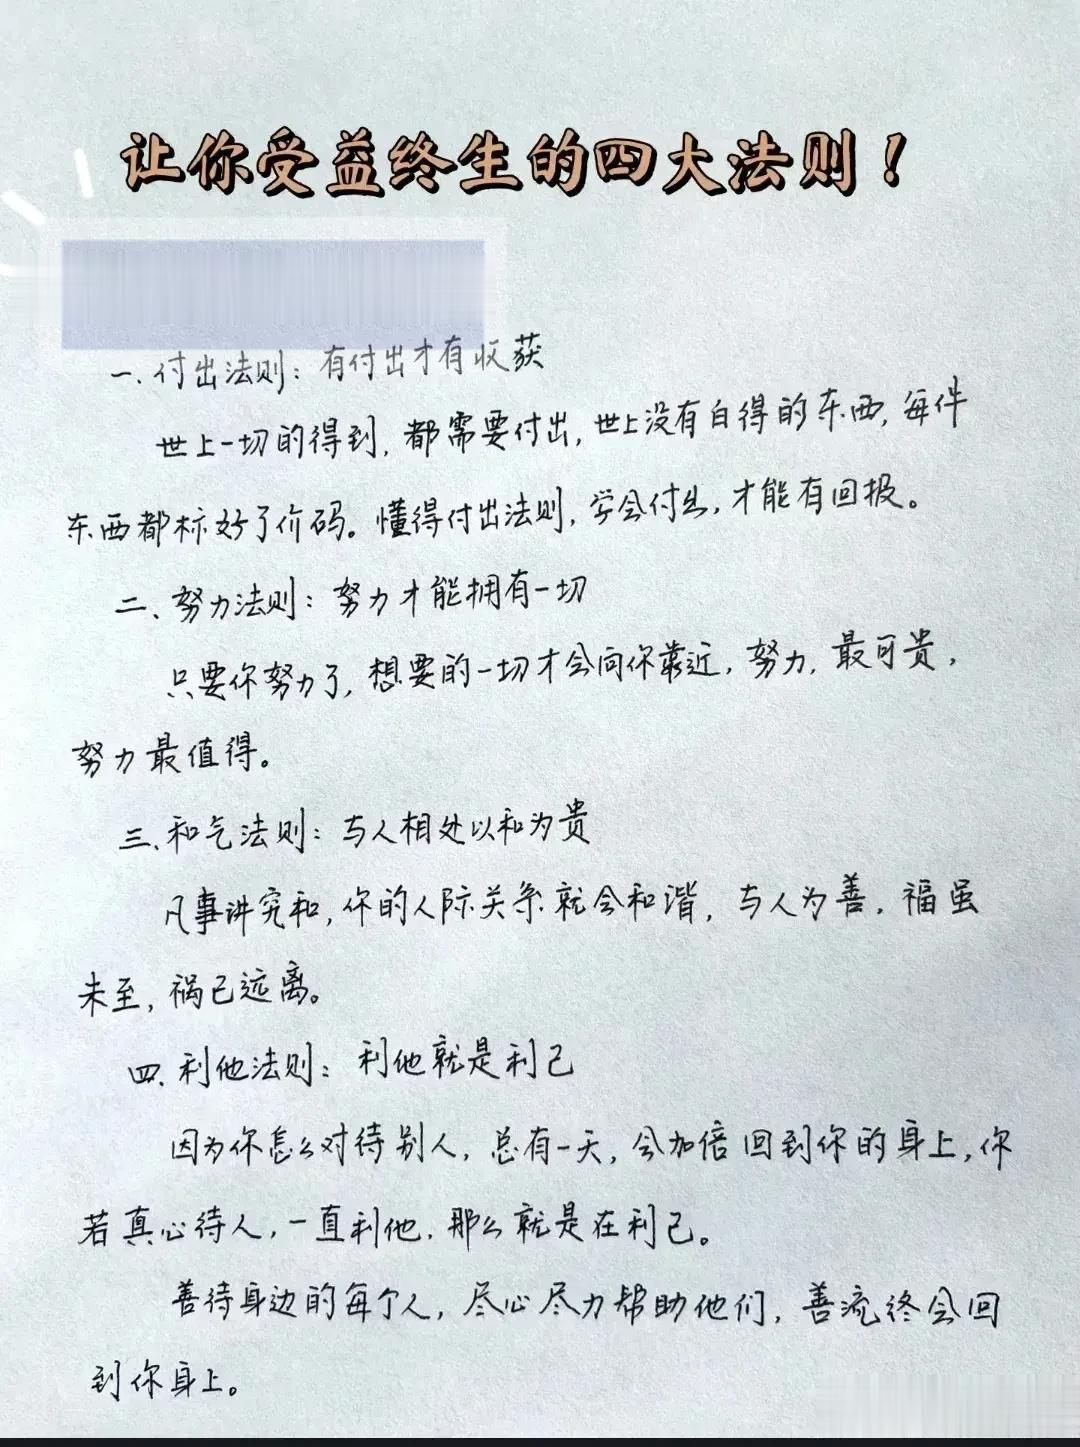 让你受益终生的四大法则！
一.付出法则：有付出才有收获
世上一切的得到,都需要付出,世上没有白得的东西,每件
东西都标好了价码。懂得付出法则,学会付出,才能有回报。
二、努力法则：努力才能拥有一切
只要你努力了,想要的一切才会向你靠近,努力,最可贵,
努力最值得。
三.和气法则：与人相处以和为贵
凡事讲究和,你的人际关系就会和谐,与人为善,福虽
未至,祸已远离。
四.利他法则：利他就是利己
因为你怎么对待别人,总有一天,会加倍回到你的身上,你
若真心待人,一直利他,那么就是在利己。
善待身边的每个人,尽心尽力帮助他们,善流终会回
到你身上。